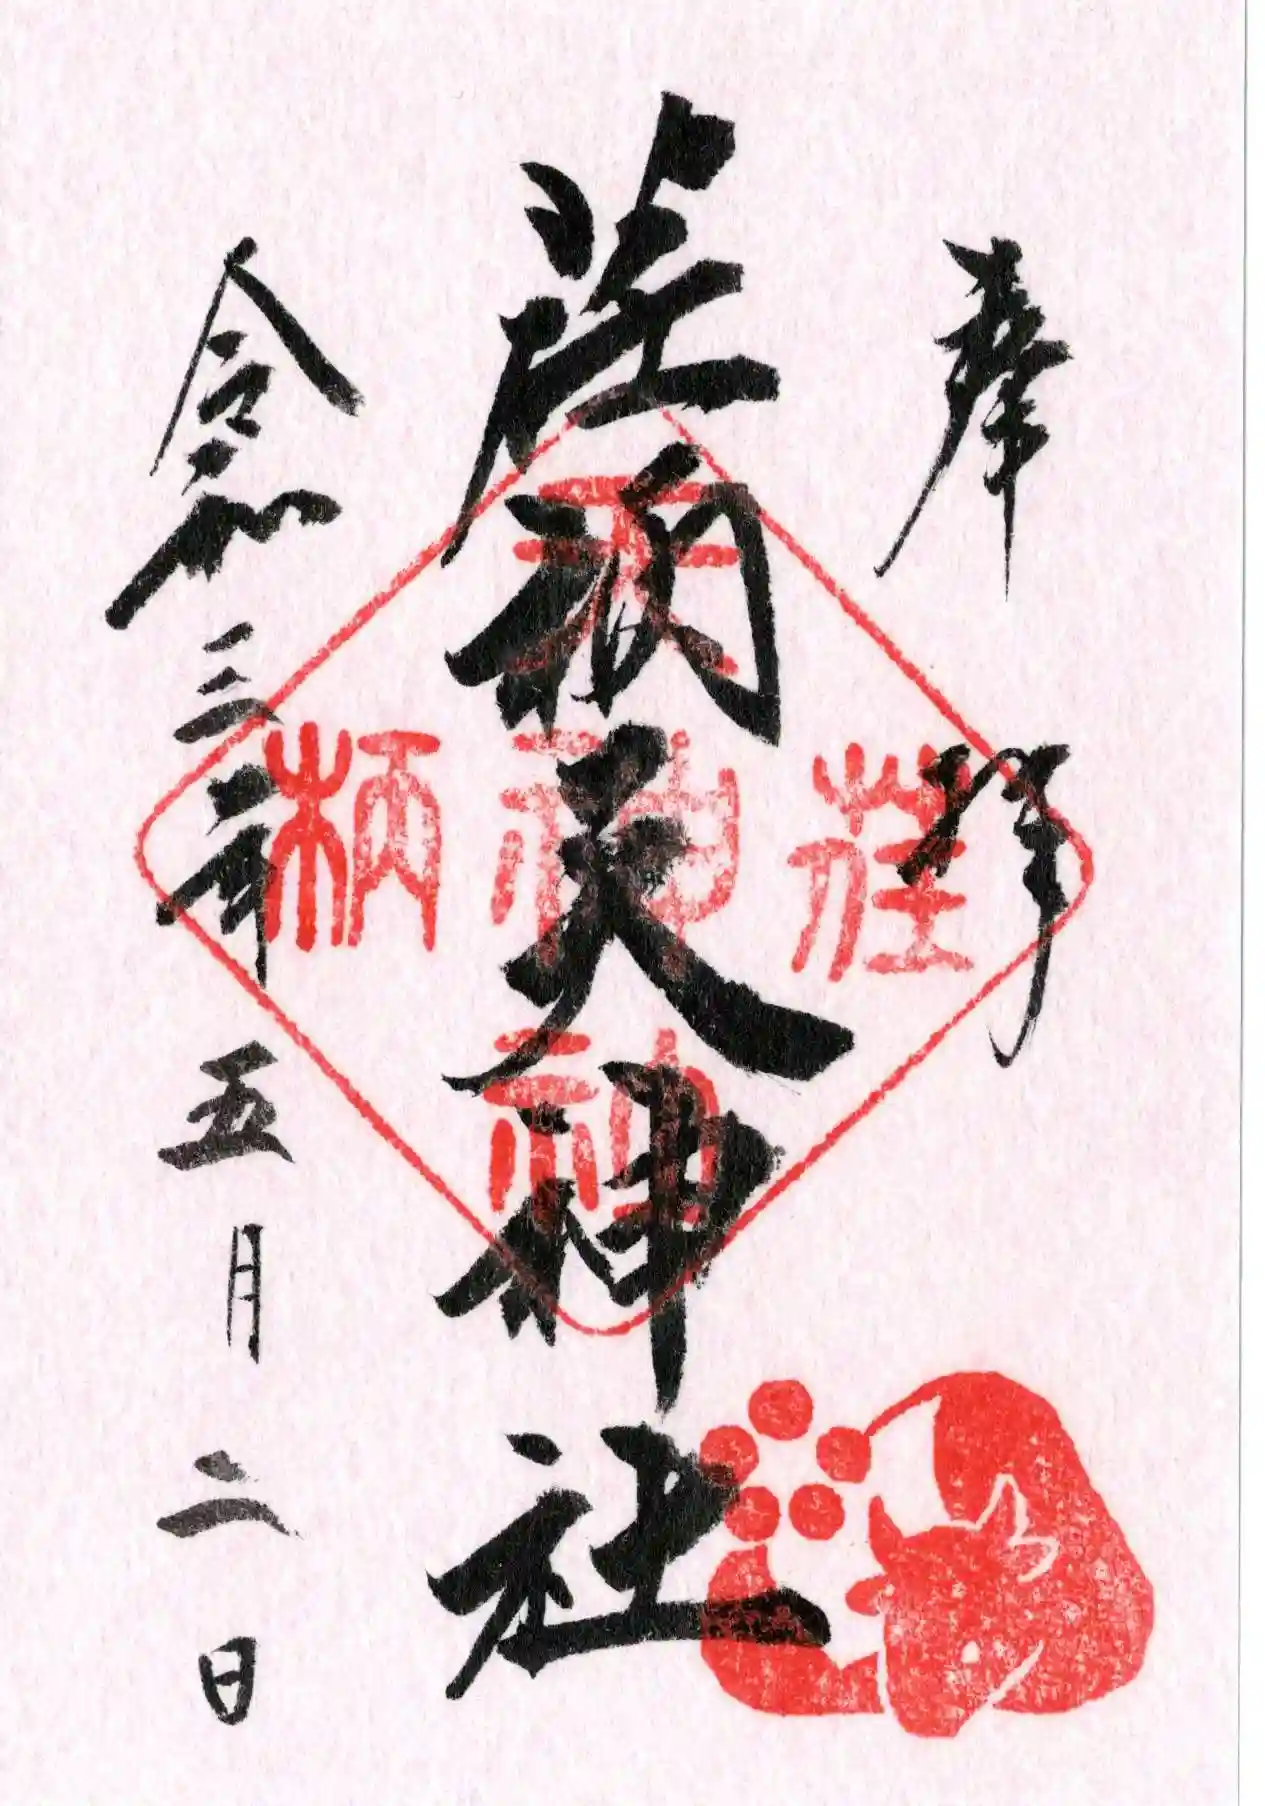 奉拝
荏柄天神社
令和三年五月二日
荏柄天神社